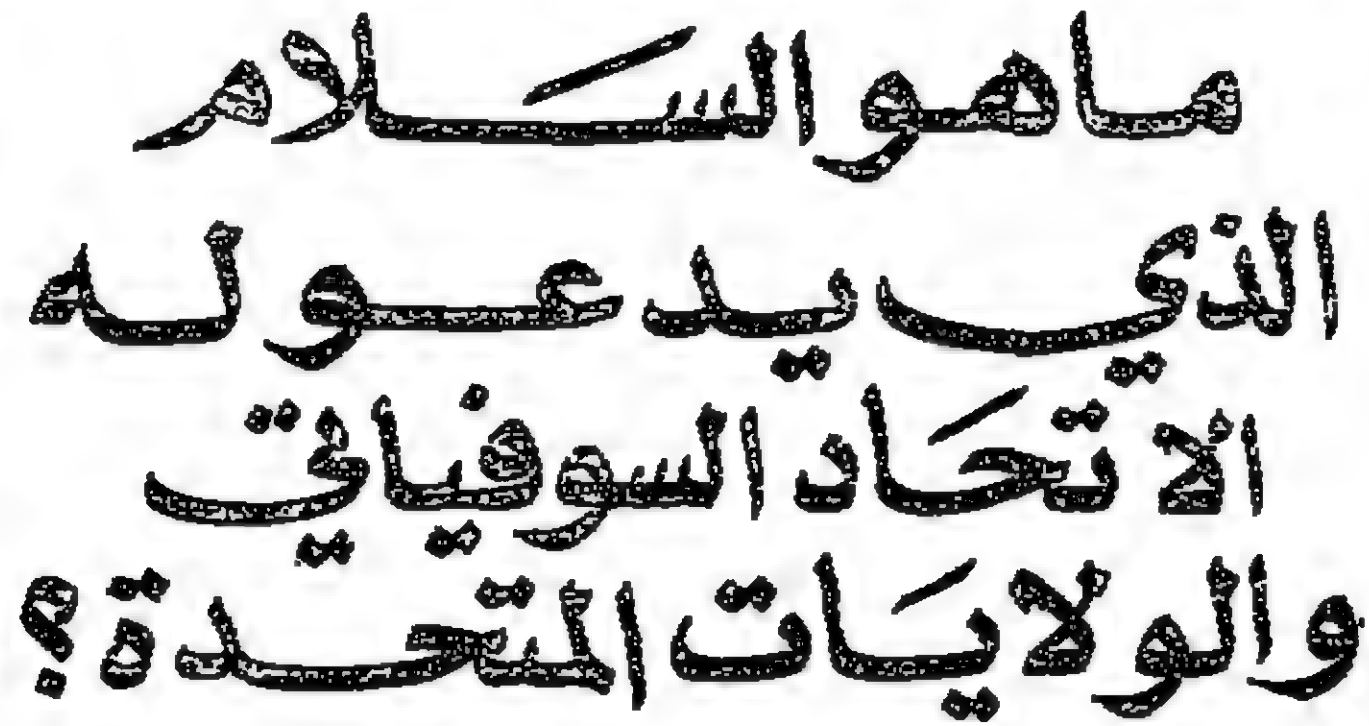 ما هو السَلام
الذي يدعو له
الاتحَاد السوفياتي
والولايَات المتحدة؟